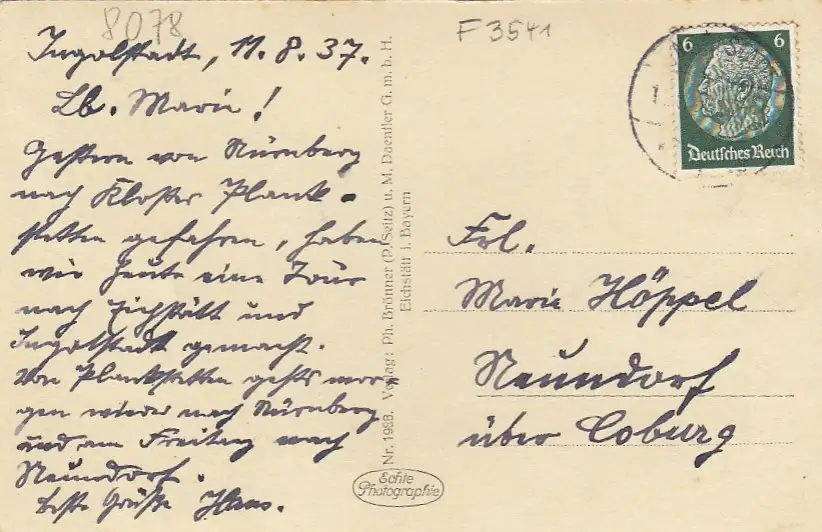 8078
F 3541
Ingolstadt, 11.8.37.
Lb. Marie!
Gestern von Nürnberg
nach Kloster Plank-
stetten gefahren, haben
wir heute eine Tour
nach Eichstätt und
Ingolstadt gemacht.
Von Plankstetten gehts mor-
gen wieder nach Nürnberg
und am Freitag nach
Neundorf.
Beste Grüße Hans.
Nr. 1988. Verlag: Ph. Brönner (P. Seitz) u. M. Daentler G. m. b. H.
Eichstätt i. Bayern
Echte
Photographie
6 6
Deutsches Reich
Frl.
Marie Höppel
Neundorf
über Coburg